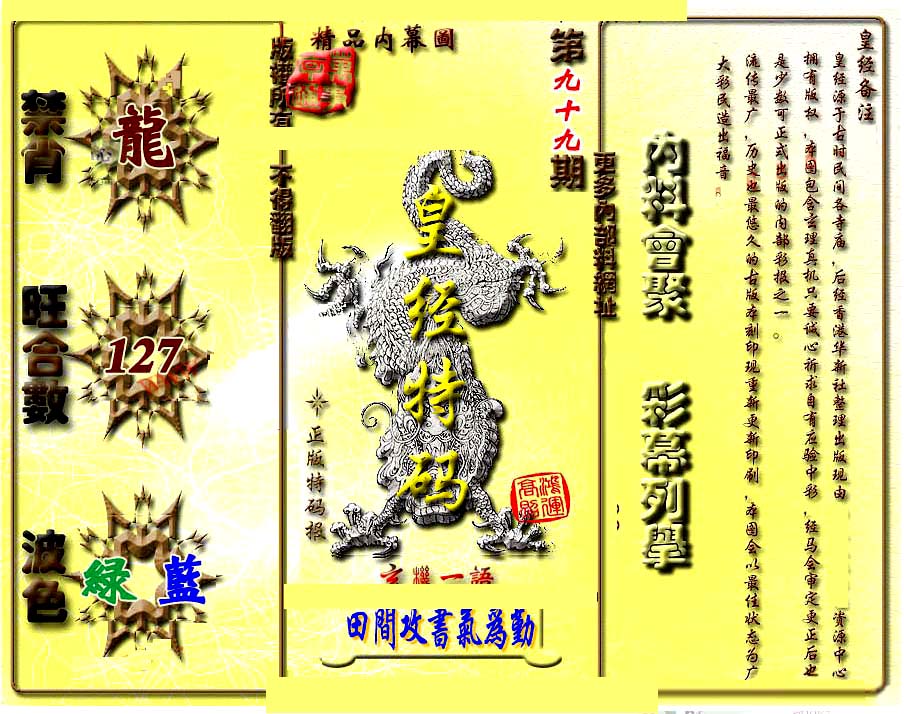 皇经备注
皇经源于古时民间各寺庙,后经香港华新社整理出版现由 资源中心
拥有版权,本图包含玄理真机只要诚心祈求自有应验中彩,经马会审定更正后也
是少数可正式出版的内部彩报之一。
流传最广,历史也最悠久的古版本刻印现重新更新印刷,本图会以最佳状态为广
大彩民造出福音
內料會聚
彩幕列舉
更多內部料網址
第九十九期
精品内幕圖
版權所有
不得翻版
皇经特码
正版特码报
鴻運
高照
玄機一語
田間攻書氣為勤
禁肖
龍
旺合數
127
波色
綠 藍